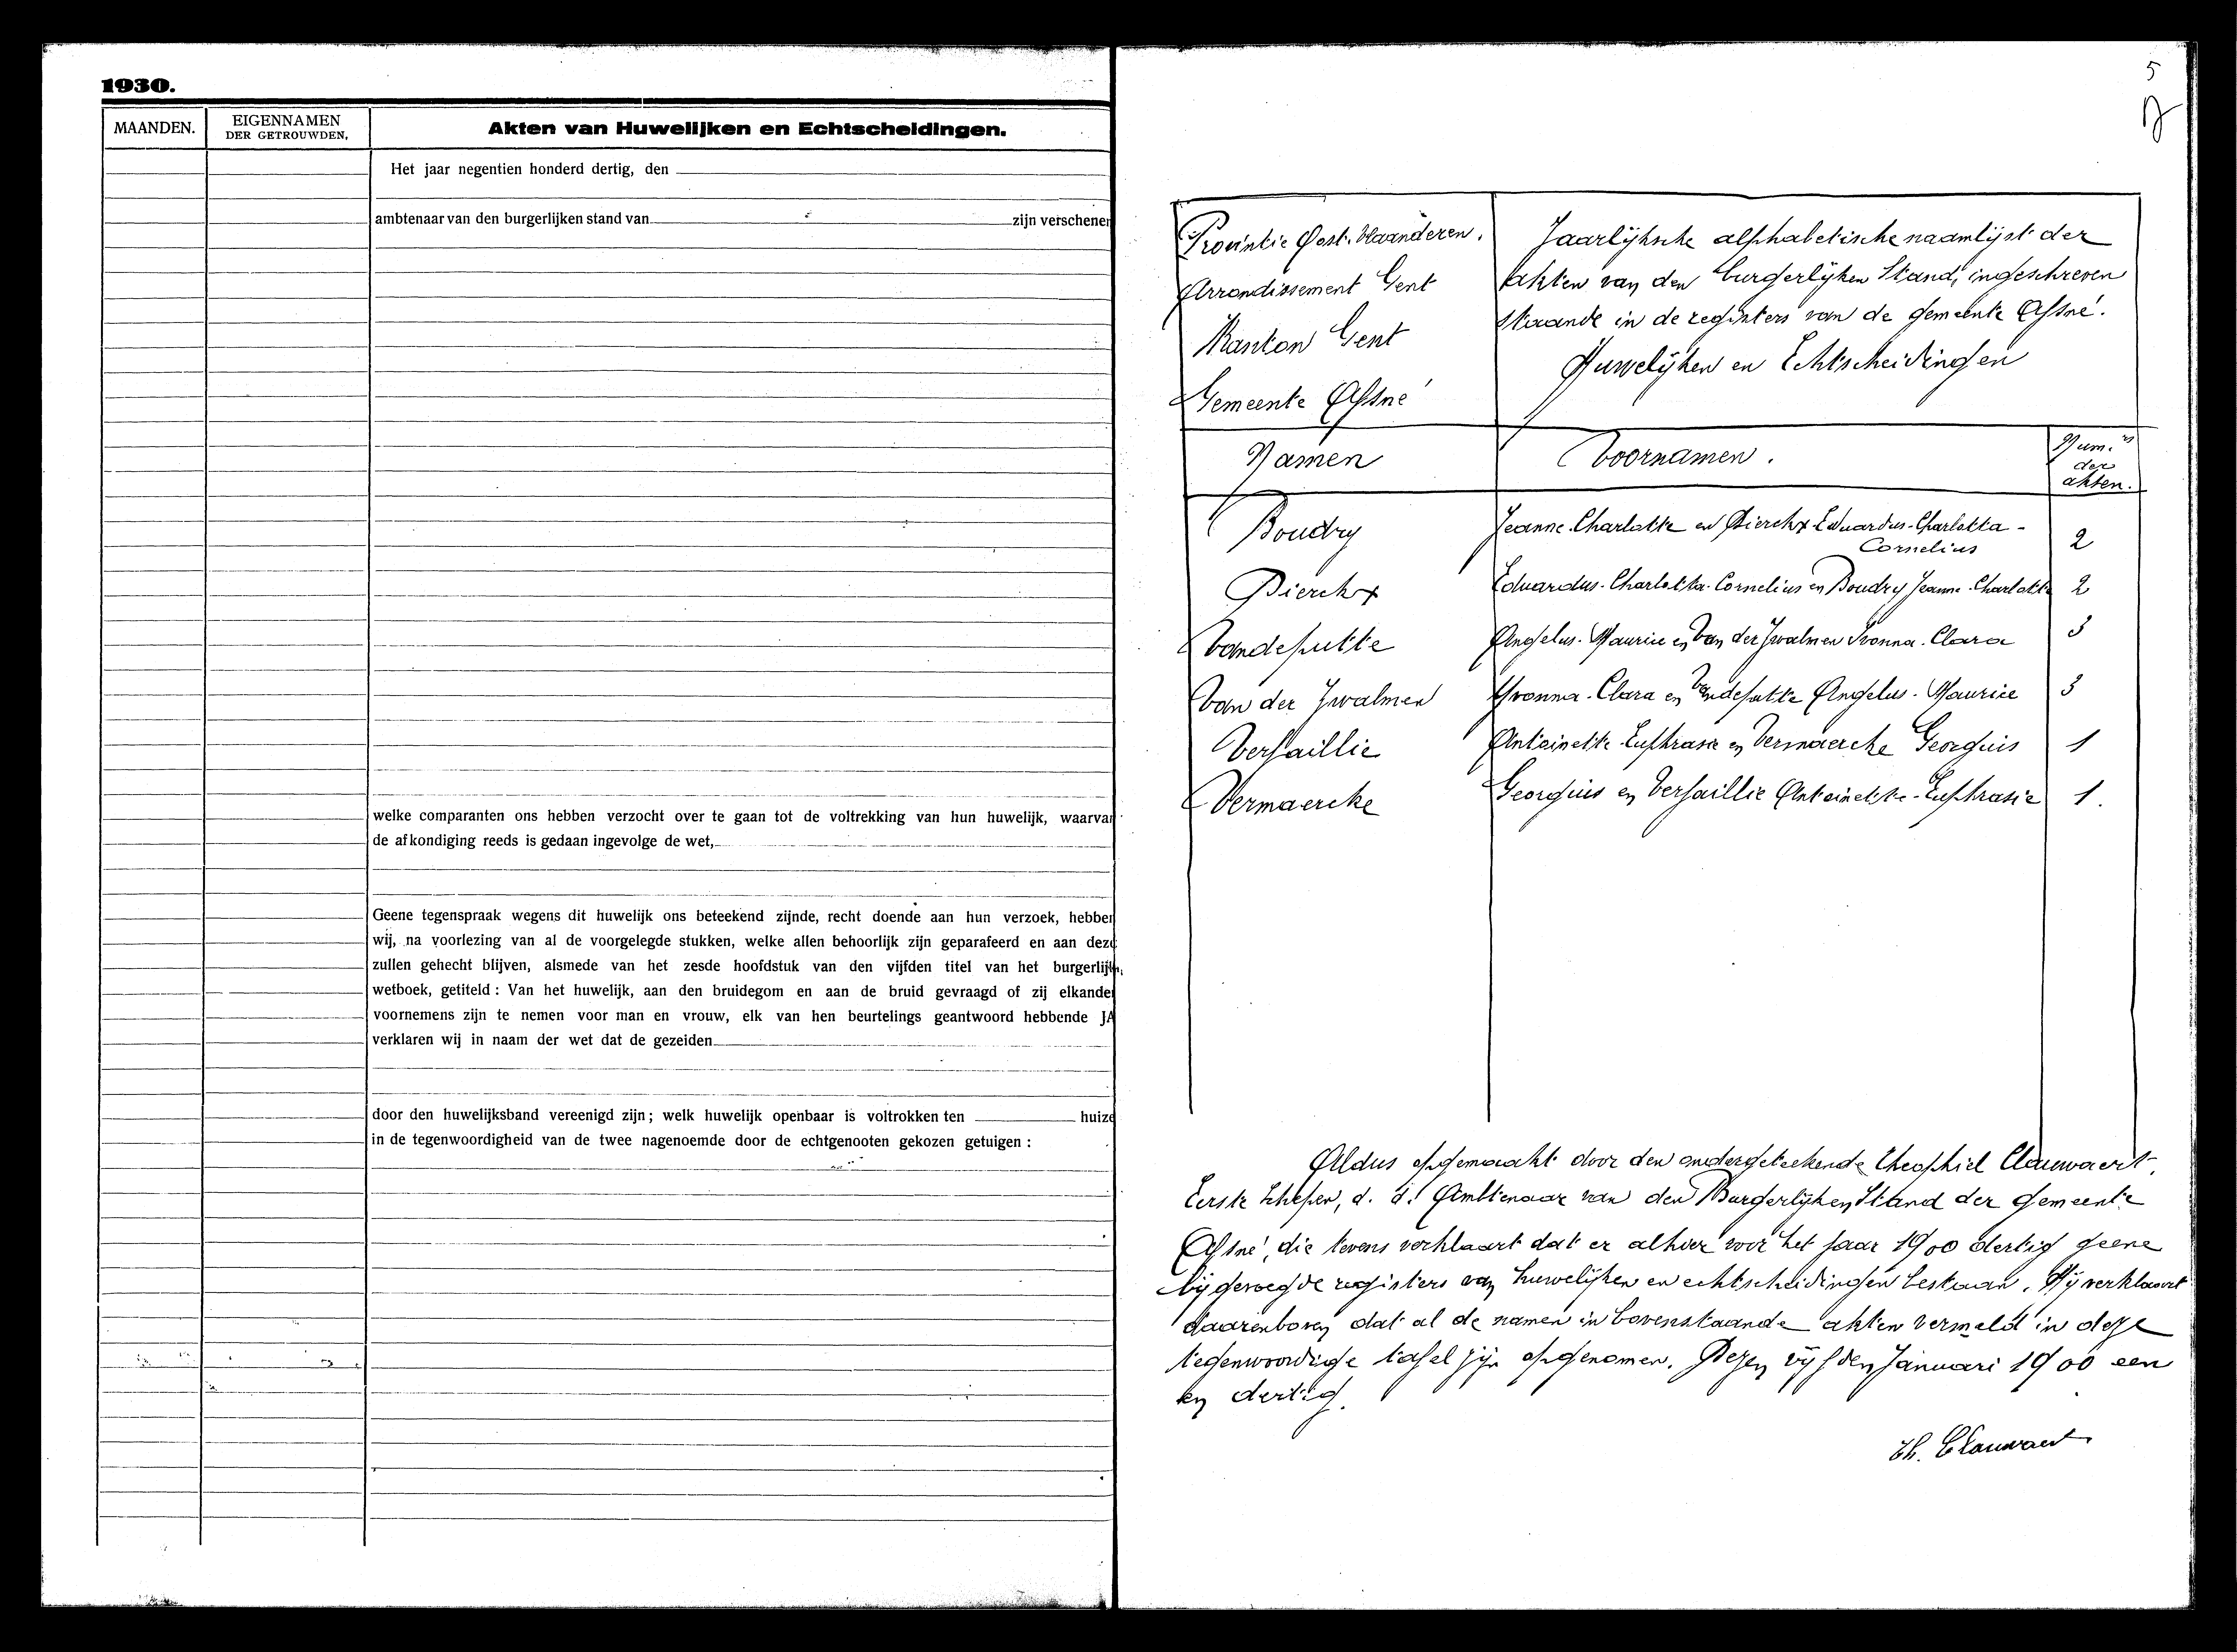 1930.
MAANDEN.
EIGENNAMEN
DER GETROUWDEN.
Akten van Huwelijken en Echtscheidingen.
Het jaar negentien honderd dertig, den
ambtenaar van den burgerlijken stand van zijn verschenen
welke comparanten ons hebben verzocht over te gaan tot de voltrekking van hun huwelijk, waarvan
de afkondiging reeds is gedaan ingevolge de wet,
Geene tegenspraak wegens dit huwelijk ons beteekend zijnde, recht doende aan hun verzoek, hebben
wij, na voorlezing van al de voorgelegde stukken, welke allen behoorlijk zijn geparafeerd en aan deze
zullen gehecht blijven, alsmede van het zesde hoofdstuk van den vijfden titel van het burgerlijk
wetboek, getiteld : Van het huwelijk, aan den bruidegom en aan de bruid gevraagd of zij elkander
voornemens zijn te nemen voor man en vrouw, elk van hen beurtelings geantwoord hebbende JA
verklaren wij in naam der wet dat de gezeiden
door den huwelijksband vereenigd zijn ; welk huwelijk openbaar is voltrokken ten huize
in de tegenwoordigheid van de twee nagenoemde door de echtgenooten gekozen getuigen :
5
Provintie Oost-Vlaanderen.
Arrondissement Gent
Kanton Gent
Gemeente Afsné
Jaarlijksche alphabetische naamlijst der
Akten van den burgerlijken Stand, ingeschreven
staande in de registers van de gemeente Afsné.
Huwelijken en Echtscheidingen
Namen Voornamen. Num.rs der akten.
Boudry Jeanne-Charlotte en Dierckx Eduardus-Charlotta-Cornelius 2
Dierckx Eduardus-Charlotta-Cornelius en Boudry Jeanne-Charlotte 2
Vandeputte Angelus-Maurice en Van der Zwalmen Ivonna-Clara 3
Van der Zwalmen Yvonna-Clara en Vandeputte Angelus-Maurice 3
Versaillie Antoinette-Euphrasie en Vermaercke Georgius 1
Vermaercke Georgius en Versaillie Antoinette-Euphrasie 1.
Aldus opgemaakt door den ondergeteekende Theophiel Clauwaert,
Eerste Schepen, d. d. Ambtenaar van den Burgerlijken Stand der Gemeente
Afsné, die tevens verklaart dat er alhier voor het jaar 1900 dertig geene
bijgevoegde registers van huwelijken en echtscheidingen bestaan. Hij verklaart
daarenboven dat al de namen in bovenstaande akten vermeld in deze
tegenwoordige tafel zijn opgenomen. Dezen vijfden Januari 1900 een
en dertig.
Th. Clauwaert